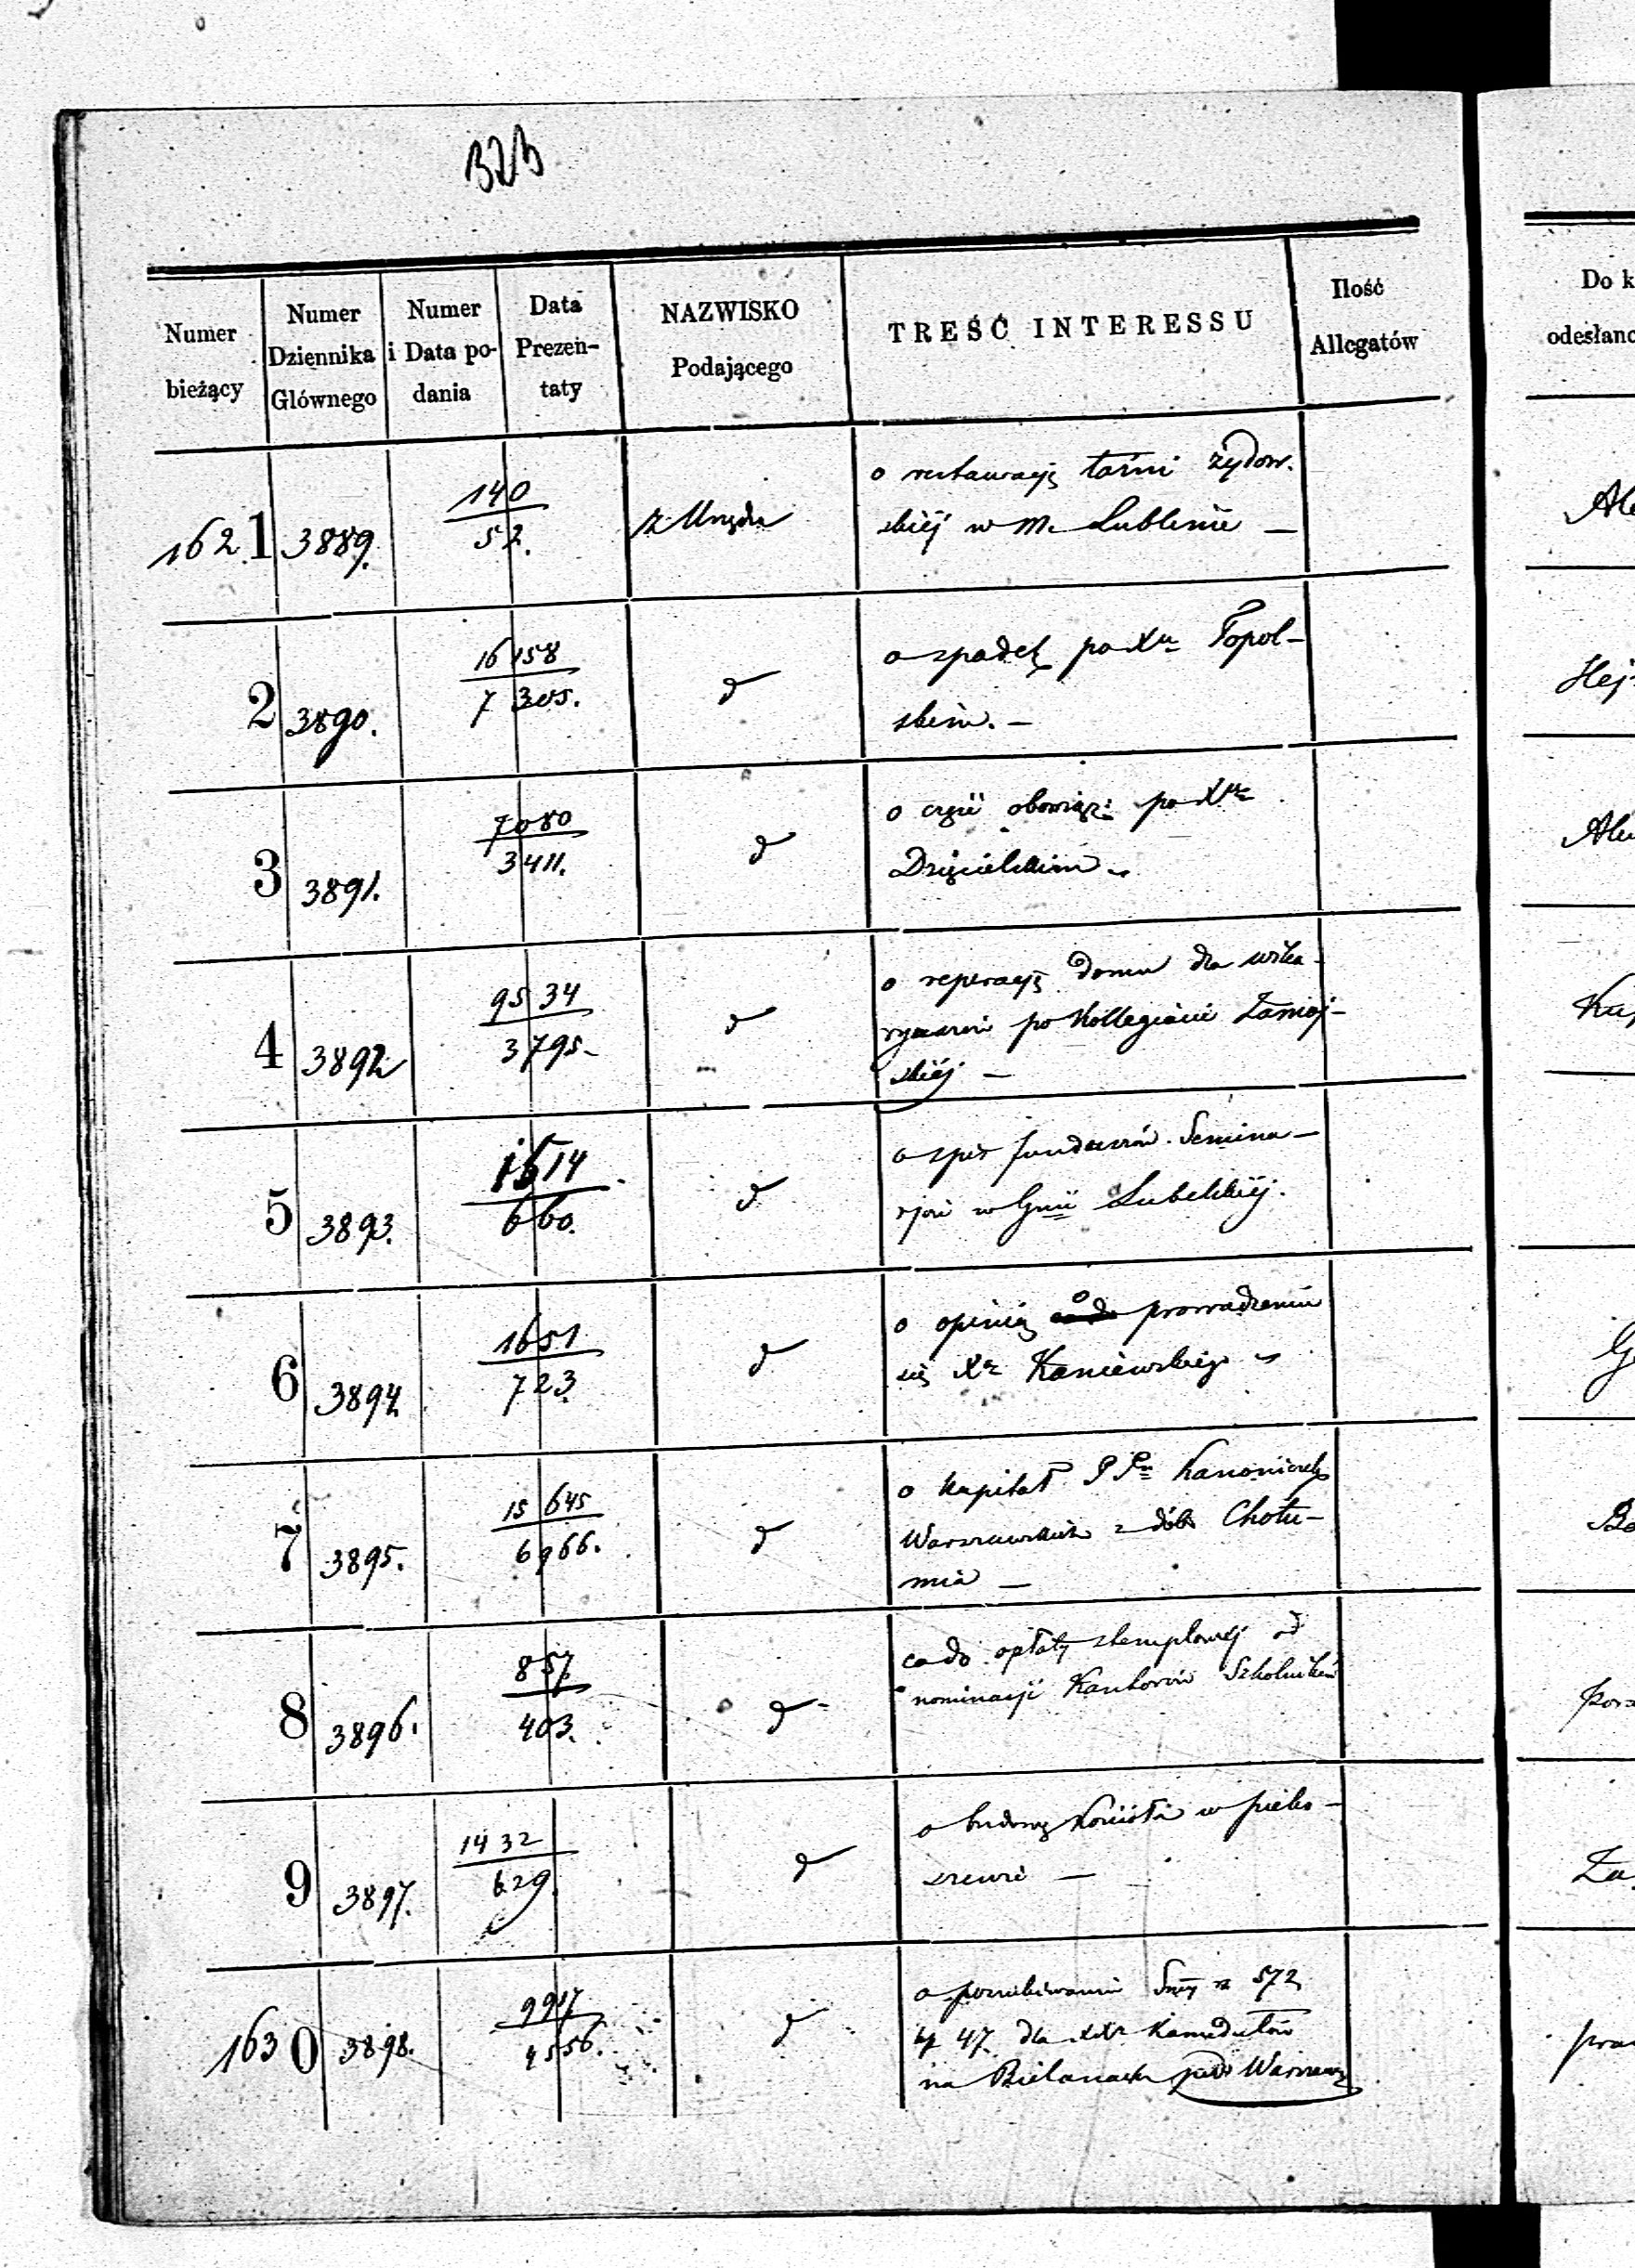 323
Numer bieżący
Numer Dziennika Głównego
Numer i Data podania
Data Prezentaty
NAZWISKO Podającego
TREŚĆ INTERESSU
Ilość Allegatów
Do k
odesłano
1621 3889. 140/52. z Urzędu o restauracyę łaźni żydow.
skiéj w m. Lublinie —
2 3890. 16158/7305. d o spadek po Xu Topol-
skim. —
3 3891. 7080/3411. d o obowiąz: po Xu
4 3892 9534/3795- d o reperacyę domu dla wika-
po Kollegiacie Zamoj-
skiéj —
5 3893. 1514/660. d o spis funduszów Semina-
w Gnii Lubelskiéj.
6 3894 1651/723. d o opinią o prowadzeniu
się Xa Kaniewskiego
7 3895. 15645/6966. d o kapitał PP Kanoniczek
Warszawskich z dóbr Chotu-
mia —
8 3896. 857/403. d co do opłaty stemplowéj od
nominacyi Kantorów Szkolników
9 3897. 1432/629. d o budowę Kościoła w
1630 3898. 9917/4556. d o poszukiwaniu 572
47 dla XX Kamedułów
na Bielanach pod Warszawą